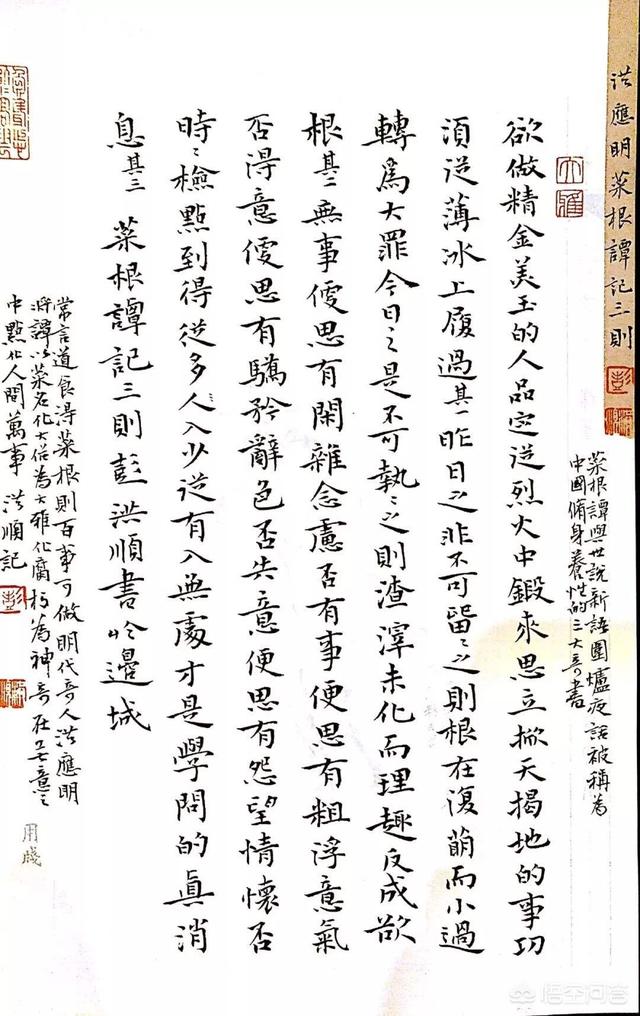 洪應明菜根譚記三則
菜根譚與世説新語圍爐夜話被稱為
中國脩身養性的三大奇書
欲做精金美玉的人品定從烈火中鍛來思立掀天揭地的事功
須從薄冰上履過其一昨日之非不可留留之則根在復萌而小過
轉為大罪今日之是不可執執之則渣滓未化而理趣反成欲
根其二無事便思有閑雜念慮否有事便思有粗浮意氣
否得意便思有驕矜辭色否失意便思有怨望情懷否
時時檢點到得從多入少從有入無處才是學問的真消
息其三 菜根譚記三則彭洪順書於邊城
常言道食得菜根則百事可做明代奇人洪應明
將譚以菜名化大俗為大雅化腐朽為神奇在無意之
中點化人間萬事 洪順記
用牋
悟空问答